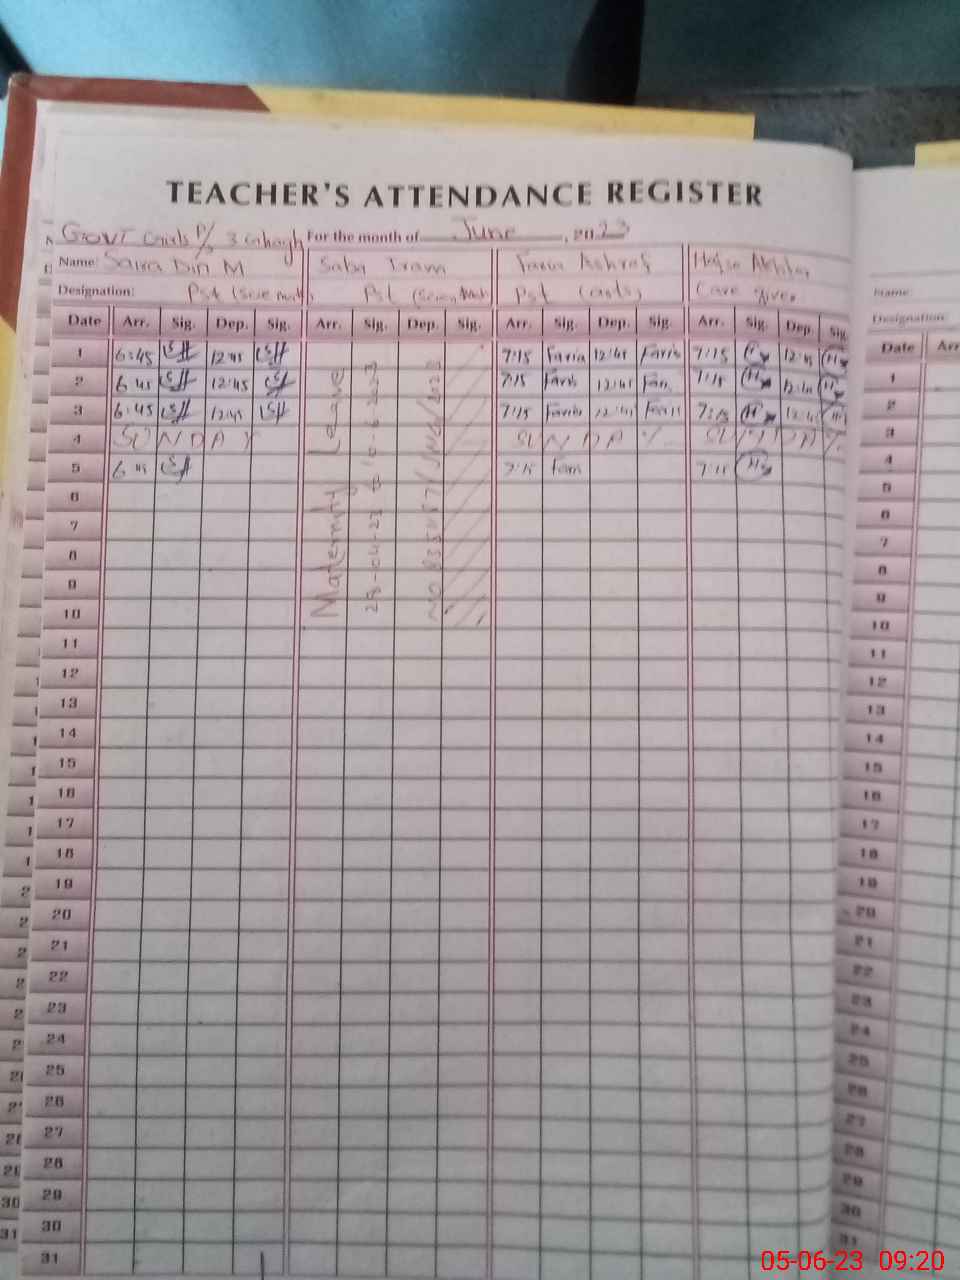 TEACHER'S ATTENDANCE REGISTER
GOVT Girls P/S 3 For the month of June, 2023
Name: Saira Din M Saba Iram Faria Ashraf Hafsa Akhtar
Designation: Pst ( Pst ( Pst (arts) Care giver
Date Arr. Sig. Dep. Sig. Arr. Sig. Dep. Sig. Arr. Sig. Dep. Sig. Arr. Sig. Dep. Sig.
1 6:45 12:45 7:15 Faria 12:45 Faria 7:15 12:45
2 6:45 12:45 7:15 Faria 12:45 Faria 7:15 12:45
3 6:45 12:45 7:15 Faria 12:45 Faria 7:15 12:45
4 SUNDAY SUNDAY SUNDAY
5 6:45 7:15 Faria 7:15
Maternity Leave
28-04-23 to 10-6-2023
6
7
8
9
10
11
12
13
14
15
16
17
18
19
20
21
22
23
24
25
26
27
28
29
30
31
Name:
Designation:
Date Arr
1
2
3
4
5
6
7
8
9
10
11
12
13
14
15
16
17
18
19
20
21
22
23
24
25
26
27
28
29
30
31
05-06-23 09:20